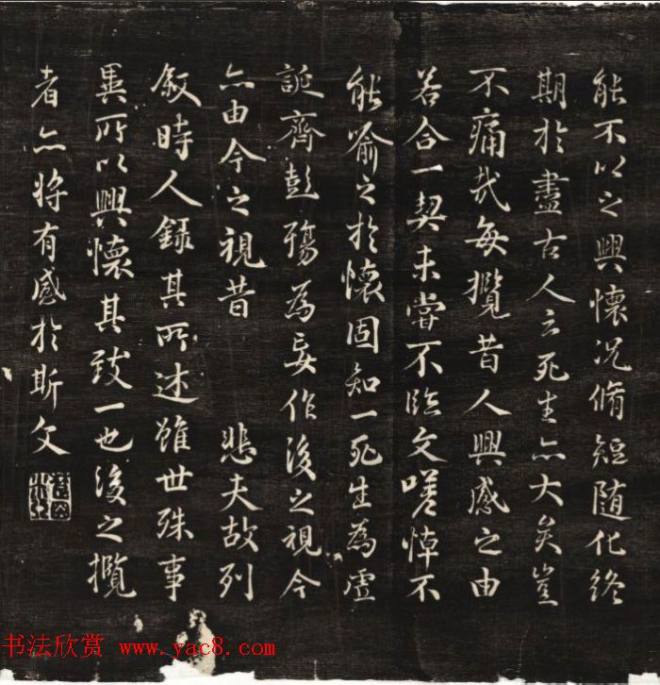 能不以之興懷況脩短隨化終
期於盡古人云死生亦大矣豈
不痛哉每攬昔人興感之由
若合一契未嘗不臨文嗟悼不
能喻之於懷固知一死生為虛
誕齊彭殤為妄作後之視今
亦由今之視昔　悲夫故列
敘時人錄其所述雖世殊事
異所以興懷其致一也後之攬
者亦將有感於斯文
书法欣赏 www.yac8.com